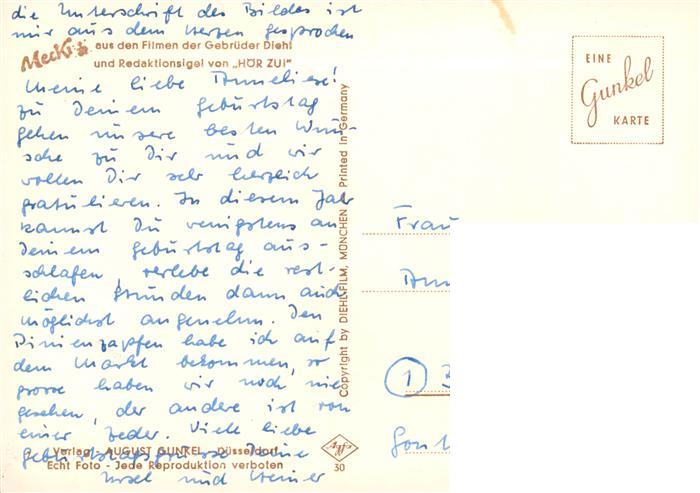 die Unterschrift des Bildes ist
mir aus dem Herzen gesprochen
Mecki aus den Filmen der Gebrüder Diehl
und Redaktionsigel von „HÖR ZU!"
Meine liebe Anneliese!
zu Deinem Geburtstag
gehen unsere besten Wün-
sche zu Dir und wir
wollen Dir sehr herzlich
gratulieren. In diesem Jahr
kannst Du wenigstens an
Deinem Geburtstag aus-
schlafen, verlebe die rest-
lichen Stunden dann auch
möglichst angenehm. Den
Pinienzapfen habe ich auf
dem Markt bekommen, so
grosse haben wir noch nie
gesehen, der andere ist von
einer Zeder. Viele liebe
Geburtstagsgrüsse Deine
Ursel und Heiner
Verlag - AUGUST GUNKEL - Düsseldorf
Echt Foto - Jede Reproduktion verboten
Copyright by DIEHL-FILM, MÜNCHEN Printed in Germany
Agfa
30
EINE
Gunkel
KARTE
Frau
Ann
1 B
Sont